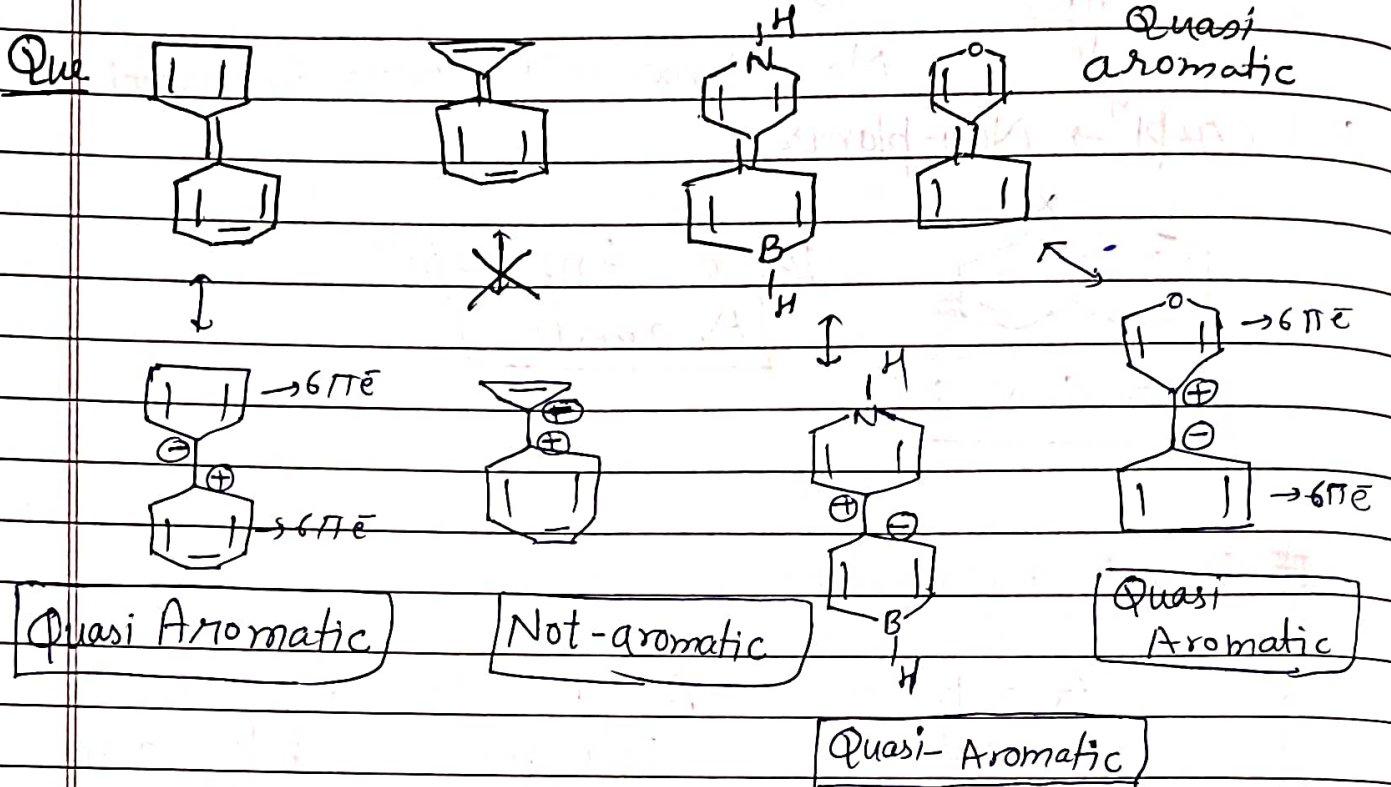 Que
H
N
B
H
O
Quasi
aromatic
→6πē
→6πē
⊖
⊕
⊖
⊕
H
N
⊕
⊖
B
H
O
→6πē
⊕
⊖
→6πē
Quasi Aromatic
Not-aromatic
Quasi
Aromatic
Quasi-Aromatic